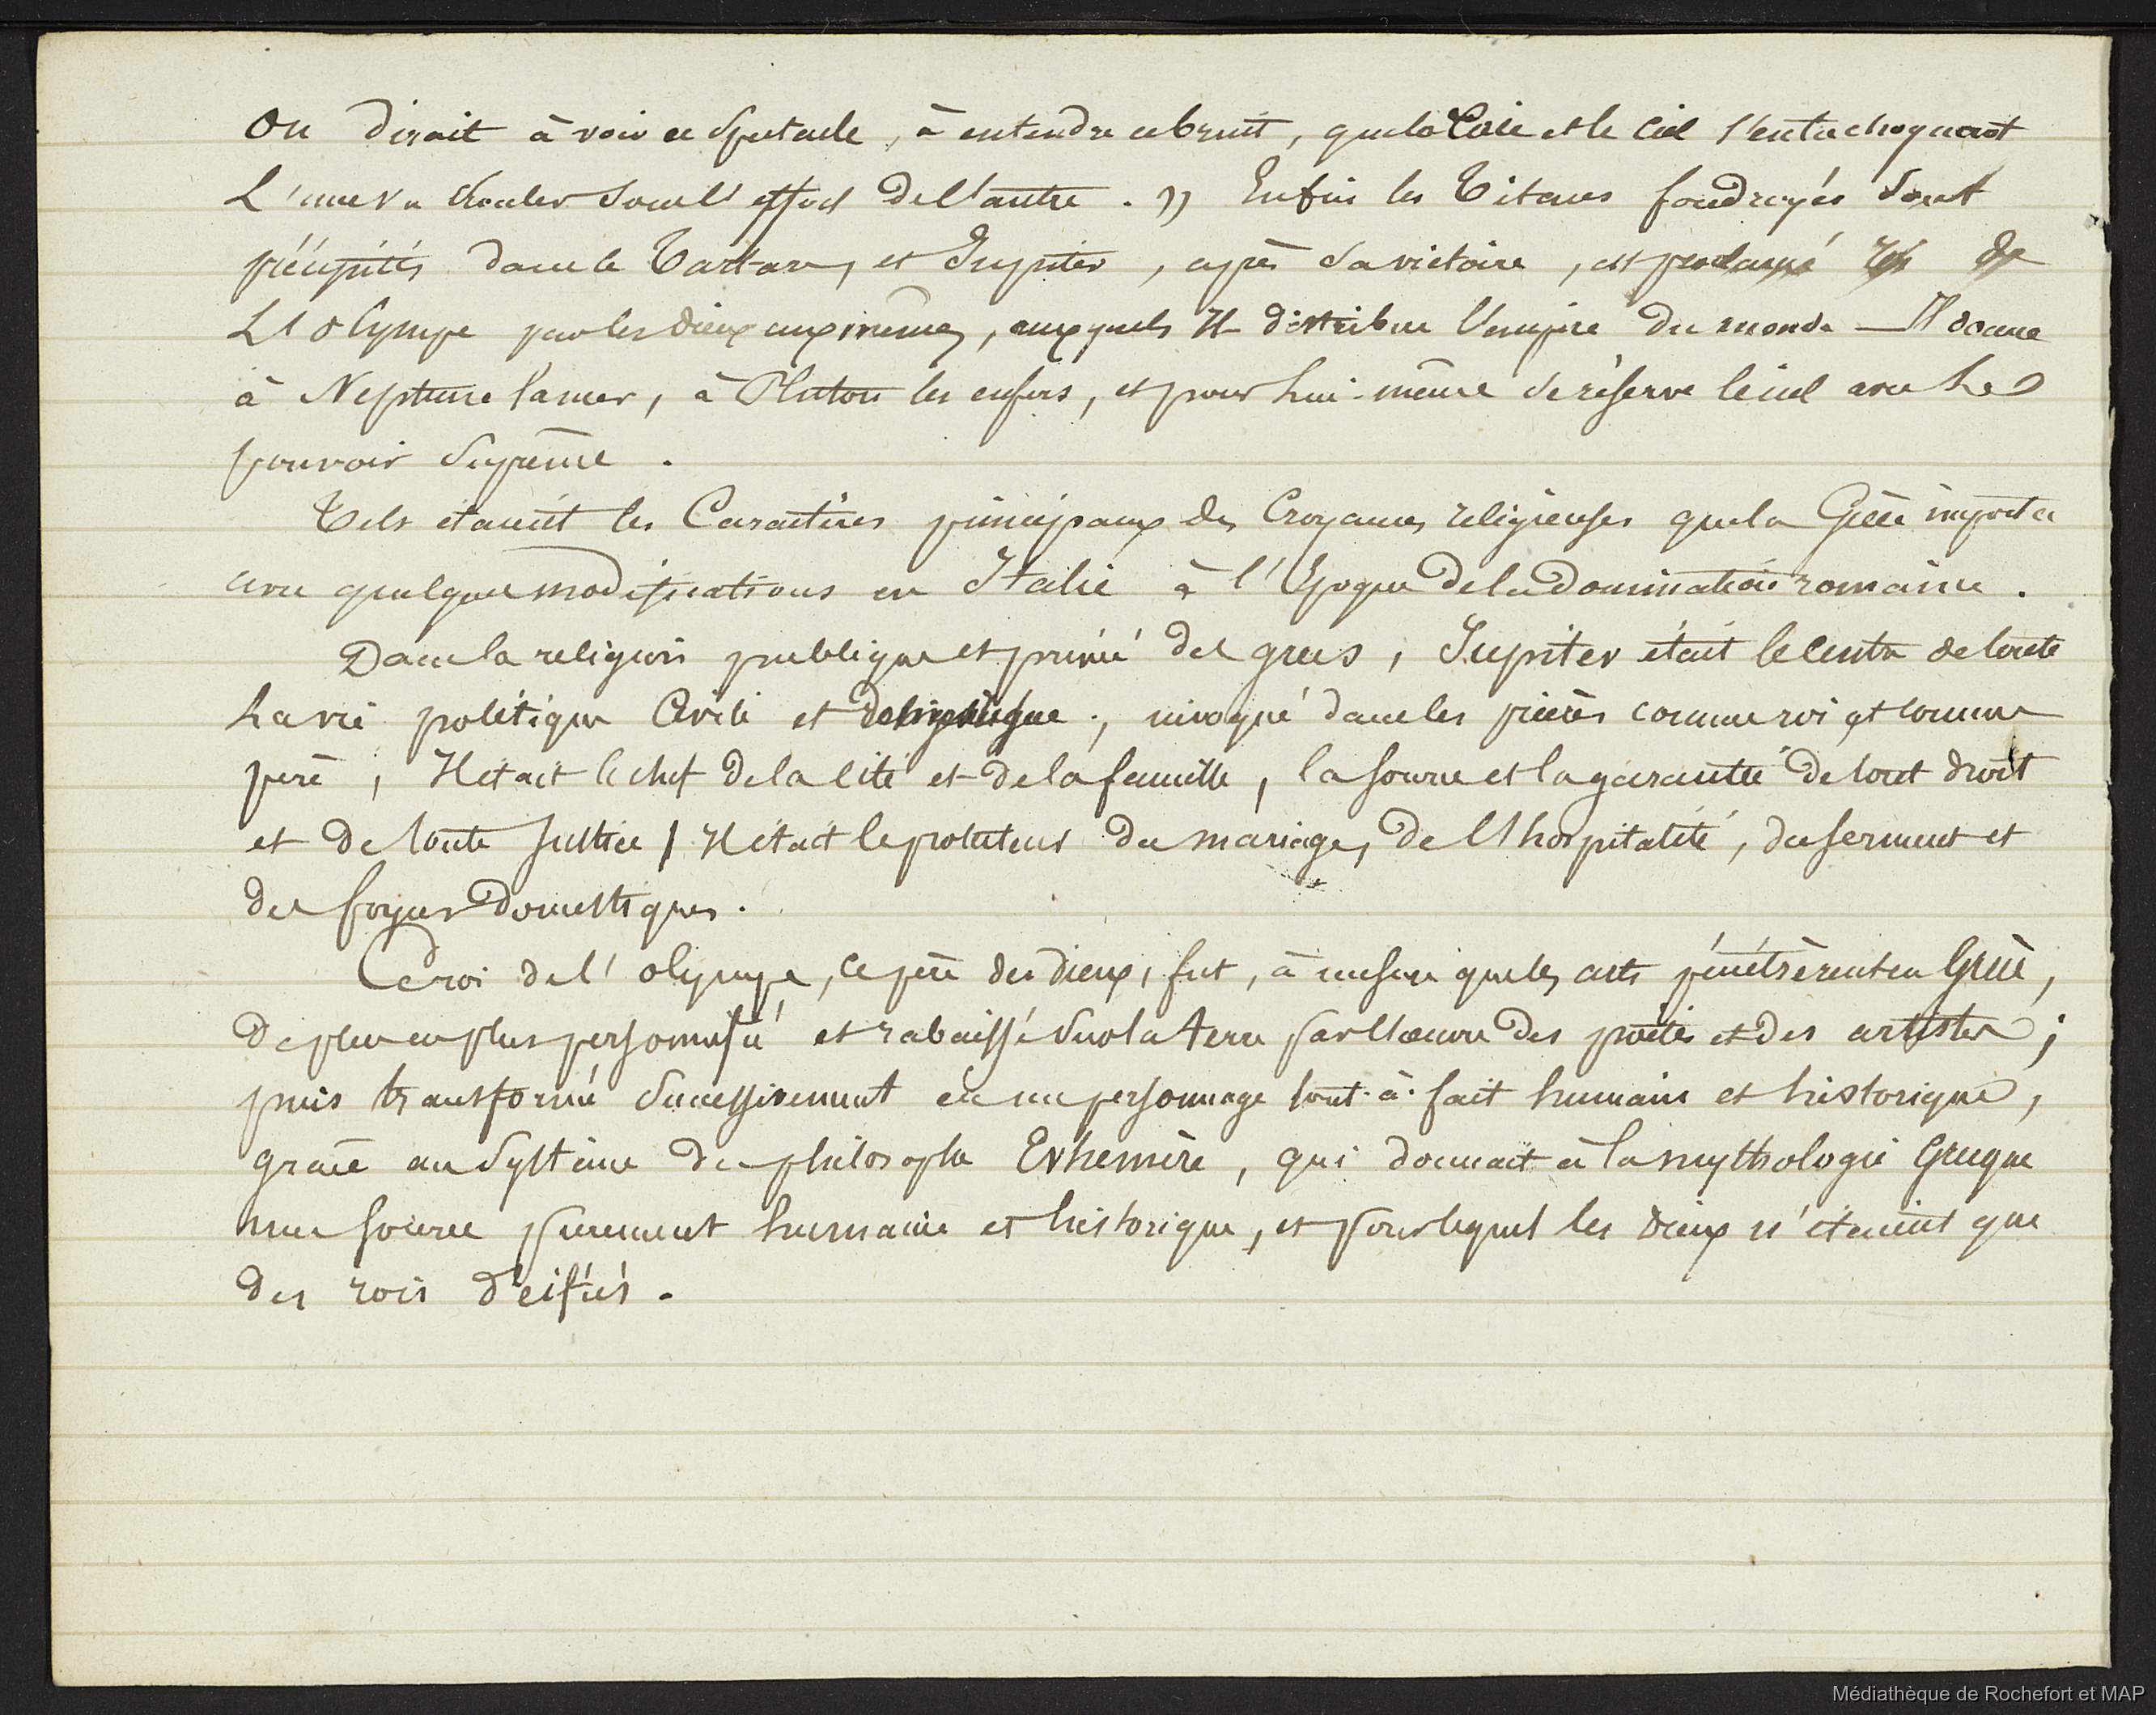 On dirait à voir ce spectacle, à entendre ce bruit, que la Terre et le Ciel s'entrechoquent
L'une va crouler sous l'effort de l'autre. » Enfin les Titans foudroyés sont
précipités dans le Tartare, et Jupiter, après sa victoire, est proclamé roi de
L'Olympe par les dieux eux mêmes, auxquels Il distribue l'empire du monde — Il donne
à Neptune la mer, à Pluton les enfers, et pour lui-même se réserve le ciel avec le
pouvoir suprême.
Tels étaient les Caractères principaux des Croyances religieuses que la Grèce importa
avec quelques modifications en Italie à l'Époque de la Domination romaine.
Dans la religion publique et privée des grecs, Jupiter était le centre de toute
La vie politique Civile et domestique, invoqué dans les prières comme roi et comme
père, Il était le chef de la cité et de la famille, la source et la garantie de tout droit
et de toute justice, Il était le protecteur du mariage, de l'hospitalité, du serment et
des foyers Domestiques.
Ce roi de l'olympe, ce père des dieux, fut, à mesure que les arts pénétrèrent en Grèce,
De plus en plus personnifié et rabaissé sur la terre par l'oeuvre des poètes et des artistes;
puis transformé successivement en un personnage tout-à-fait humain et historique,
grace au système du philosophe Evhemère, qui donnait à la mythologie Grecque
une source purement humaine et historique, et pour lequel les dieux n'étaient que
des rois déifiés.
Médiathèque de Rochefort et MAP